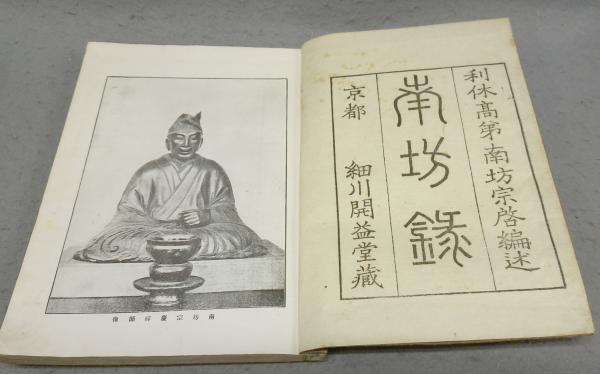 利休高第南坊宗啓編述
南坊録
京都 細川開益堂藏
南坊宗啓禅師像